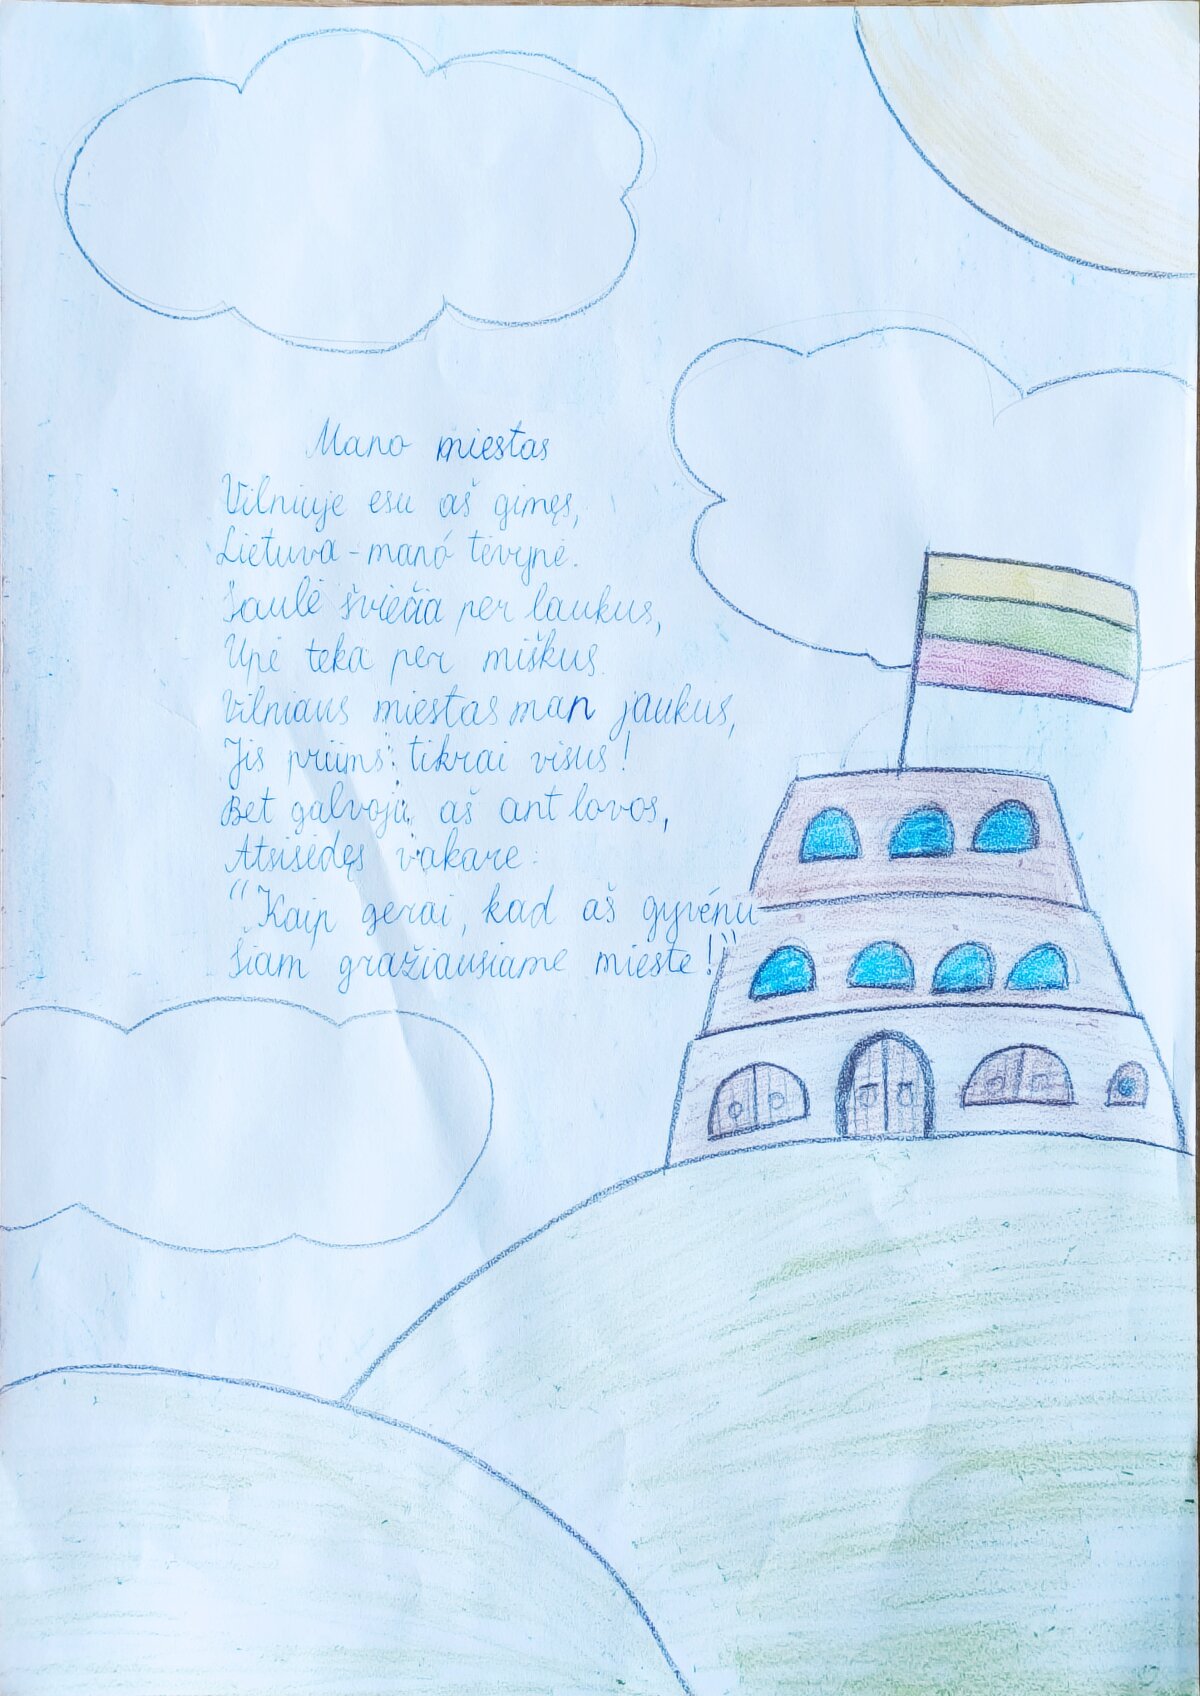 Mano miestas
Vilniuje esu aš gimęs,
Lietuva - mano tėvynė.
Saulė šviečia per laukus,
Upė teka per miškus.
Vilniaus miestas man jaukus,
Jis priims tikrai visus!
Bet galvoju aš ant lovos,
Atsisėdęs vakare:
"Kaip gerai, kad aš gyvenu
Šiam gražiausiame mieste!"